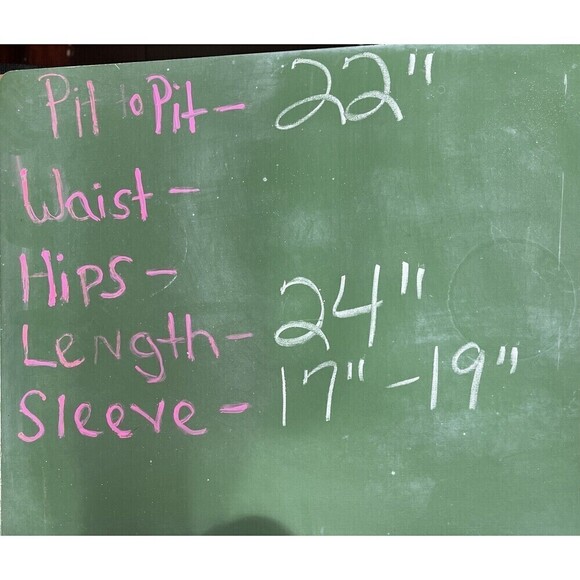 Pit to Pit - 22"
Waist -
Hips -
Length - 24"
Sleeve - 17" - 19"